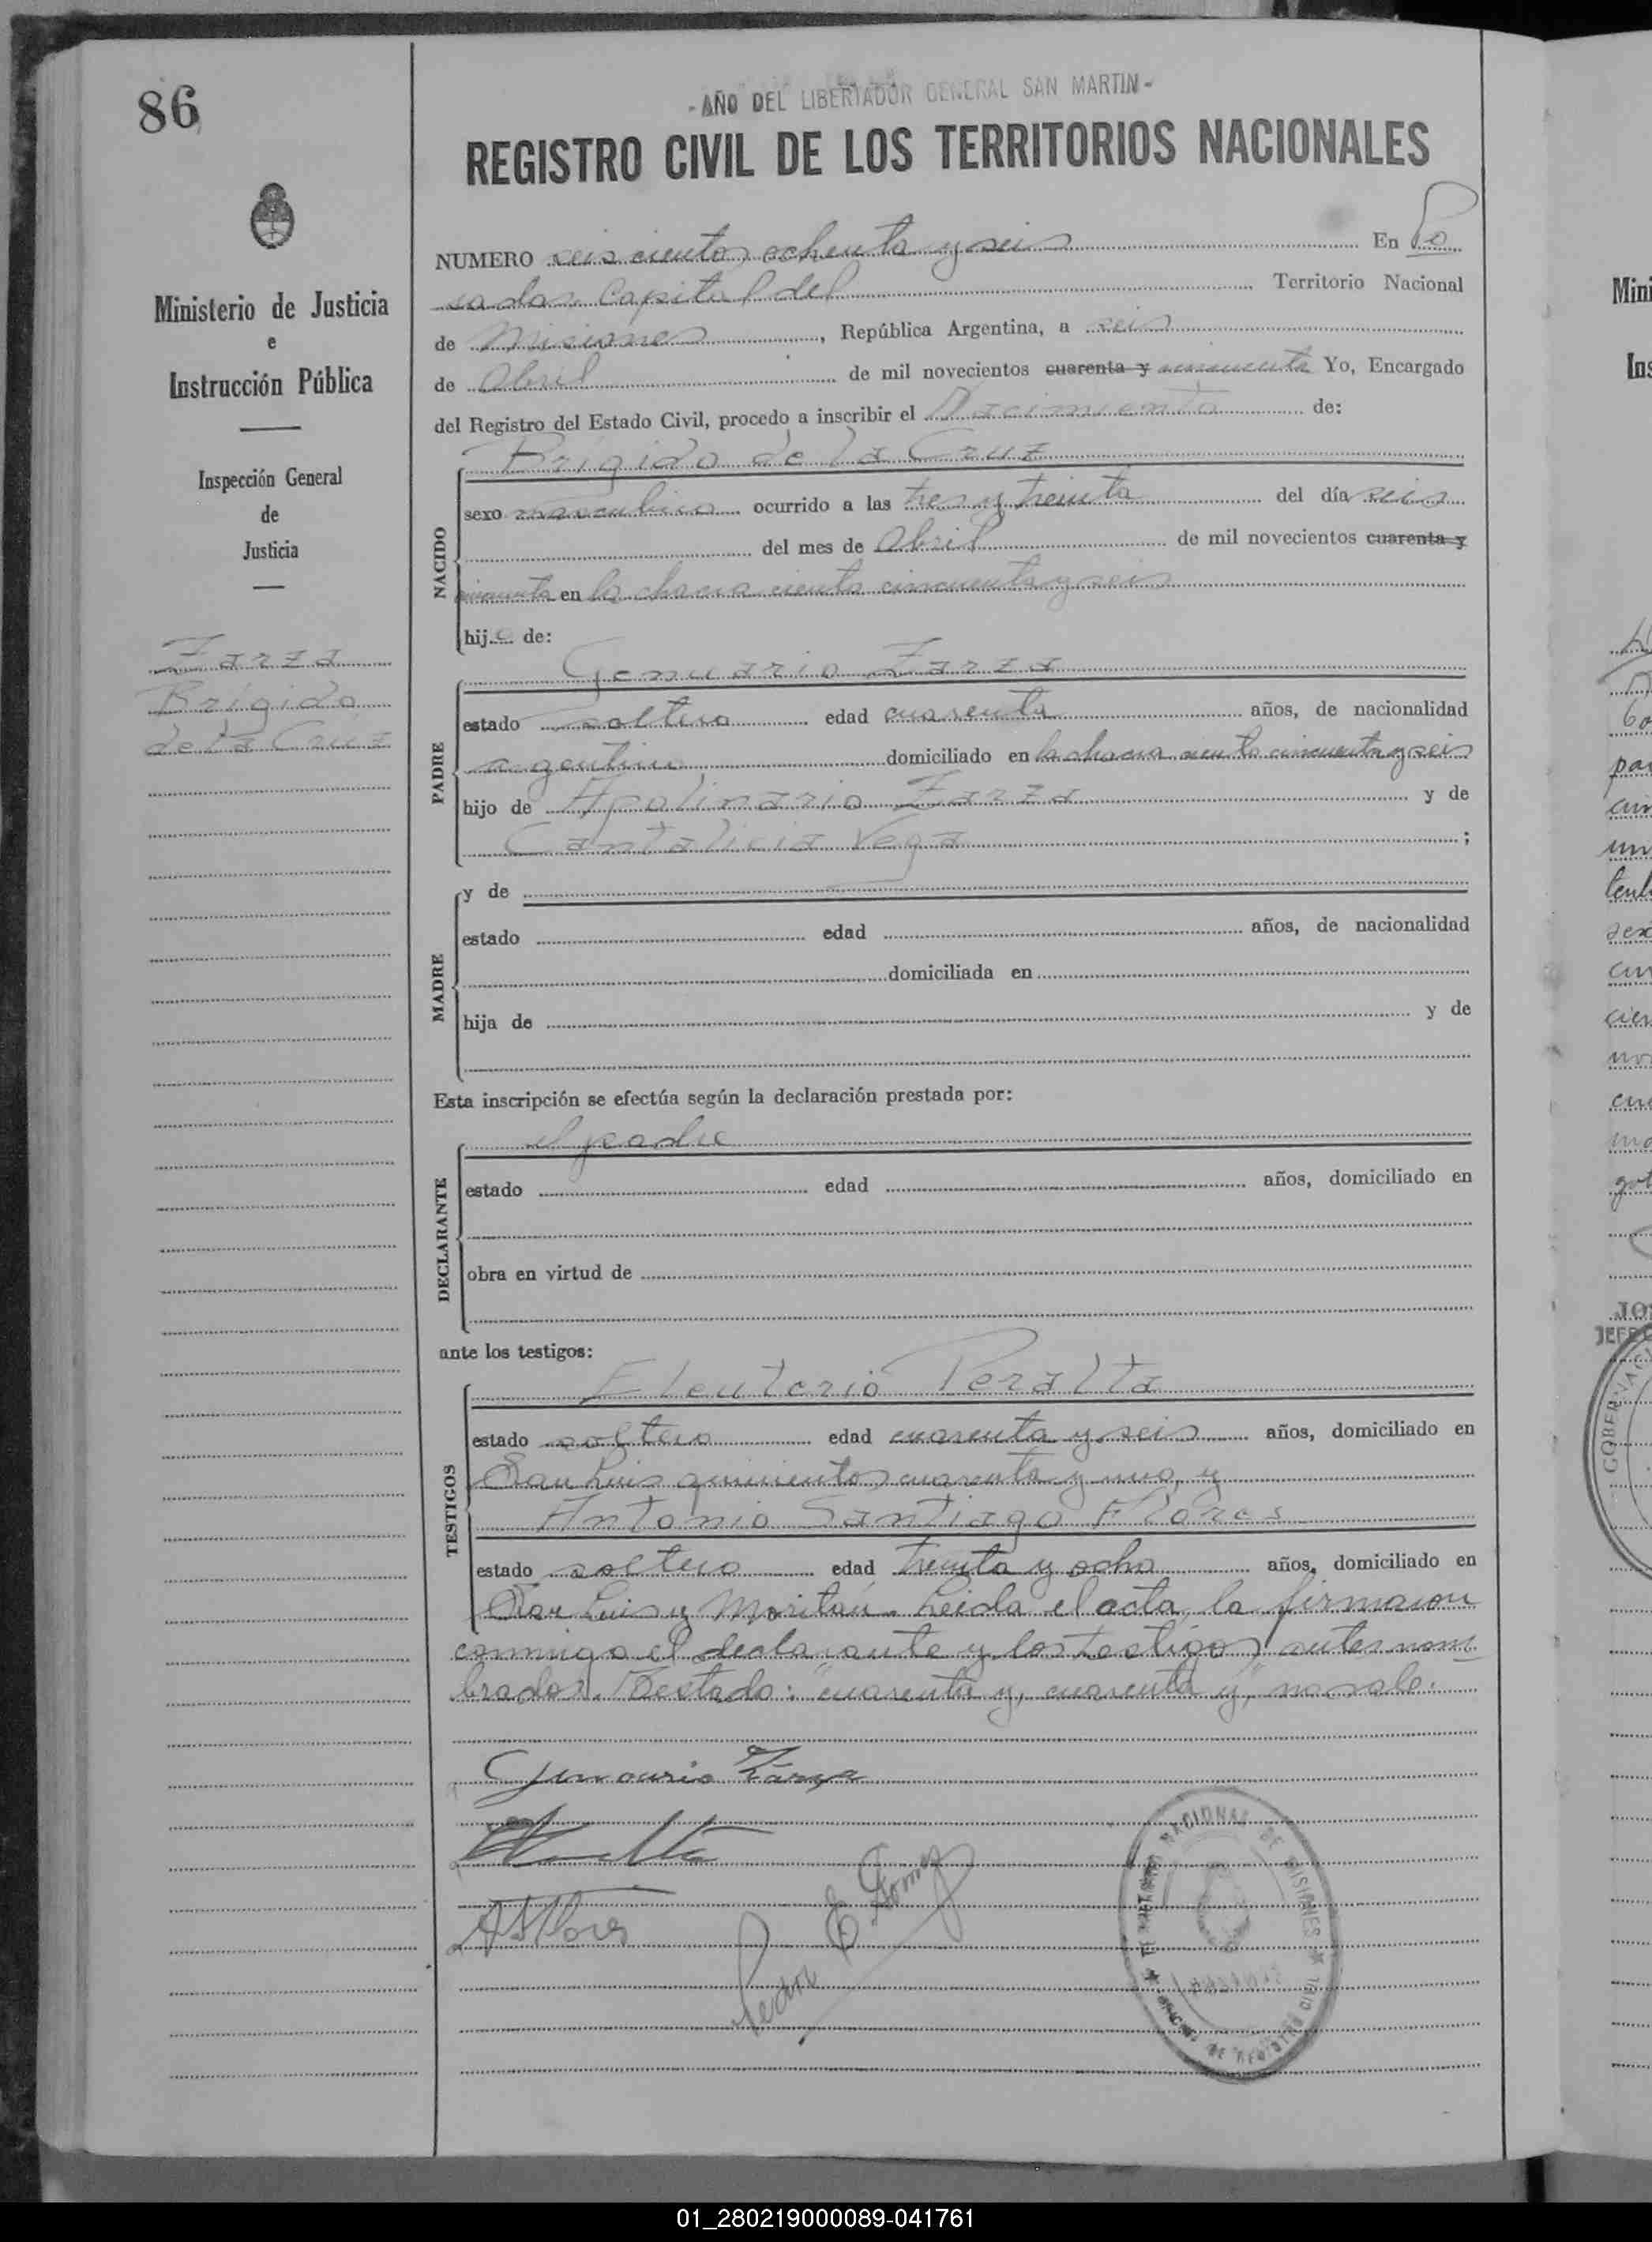 86
- AÑO DEL LIBERTADOR GENERAL SAN MARTIN -
REGISTRO CIVIL DE LOS TERRITORIOS NACIONALES
Ministerio de Justicia
e
Instrucción Pública
Inspección General
de
Justicia
Zarza
Brigido
de la Cruz
NUMERO seiscientos ochenta y seis En Po
sadas Capital del Territorio Nacional
de Misiones, República Argentina, a seis
de Abril de mil novecientos cuarenta y cincuenta Yo, Encargado
del Registro del Estado Civil, procedo a inscribir el Nacimiento de:
NACIDO
Brigido de la Cruz
sexo masculino ocurrido a las tres y treinta del día seis
del mes de Abril de mil novecientos cuarenta y
cincuenta en la chacra ciento cincuenta y seis
hijo de:
PADRE
Genuario Zarza
estado soltero edad cuarenta años, de nacionalidad
argentino domiciliado en la chacra ciento cincuenta y seis
hijo de Apolinario Zarza y de
Cantalicia Vega ;
MADRE
y de
estado edad años, de nacionalidad
domiciliada en
hija de y de
Esta inscripción se efectúa según la declaración prestada por:
DECLARANTE
el padre
estado edad años, domiciliado en
obra en virtud de
ante los testigos:
TESTIGOS
Eleuterio Peralta
estado soltero edad cuarenta y seis años, domiciliado en
San Luis quinientos cuarenta y uno, y
Antonio Santiago Flores
estado soltero edad treinta y ocho años, domiciliado en
San Luis y Moritán. Leída el acta, la firmaron
conmigo el declarante y los testigos antes nom
brados. Testado: "cuarenta y, cuarenta y," no vale.
Genuario Zarza
A S Flores
Pedro E. Gomez
NACIONAL DE MISIONES
01_280219000089-041761